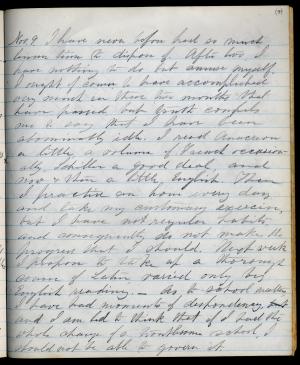 Nov 9 I have never before had so much
time to dispose of. After two I
have nothing to do but amuse myself.
I ought of course to have accomplished
very much in these two months that
have passed but truth compels
me to say that I have been
abominably idle. I read Anacreon
a little, a volume of French occasion-
ally Schiller a good deal, and
now & then a little English. Then
I practice an hour every day
and take my customary exercise,
but I have not regular habits
and consequently do not make the
progress that I should. Next week
I propose to take up a thorough
course of Latin varied only by
English reading. As to school matters
I have had moments of despondency
and I am led to think that if I had the
whole charge of a troublesome school, I
should not be able to govern it.